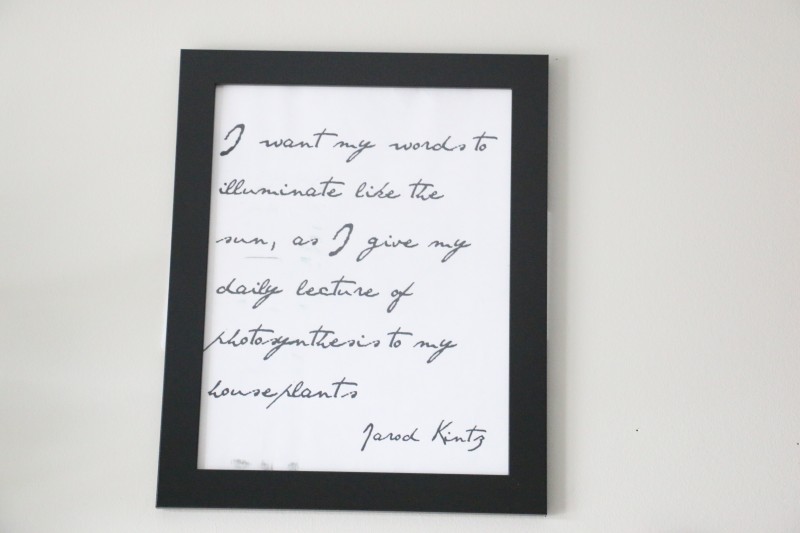 I want my words to
illuminate like the
sun, as I give my
daily lecture of
photosynthesis to my
houseplants
Jarod Kintz